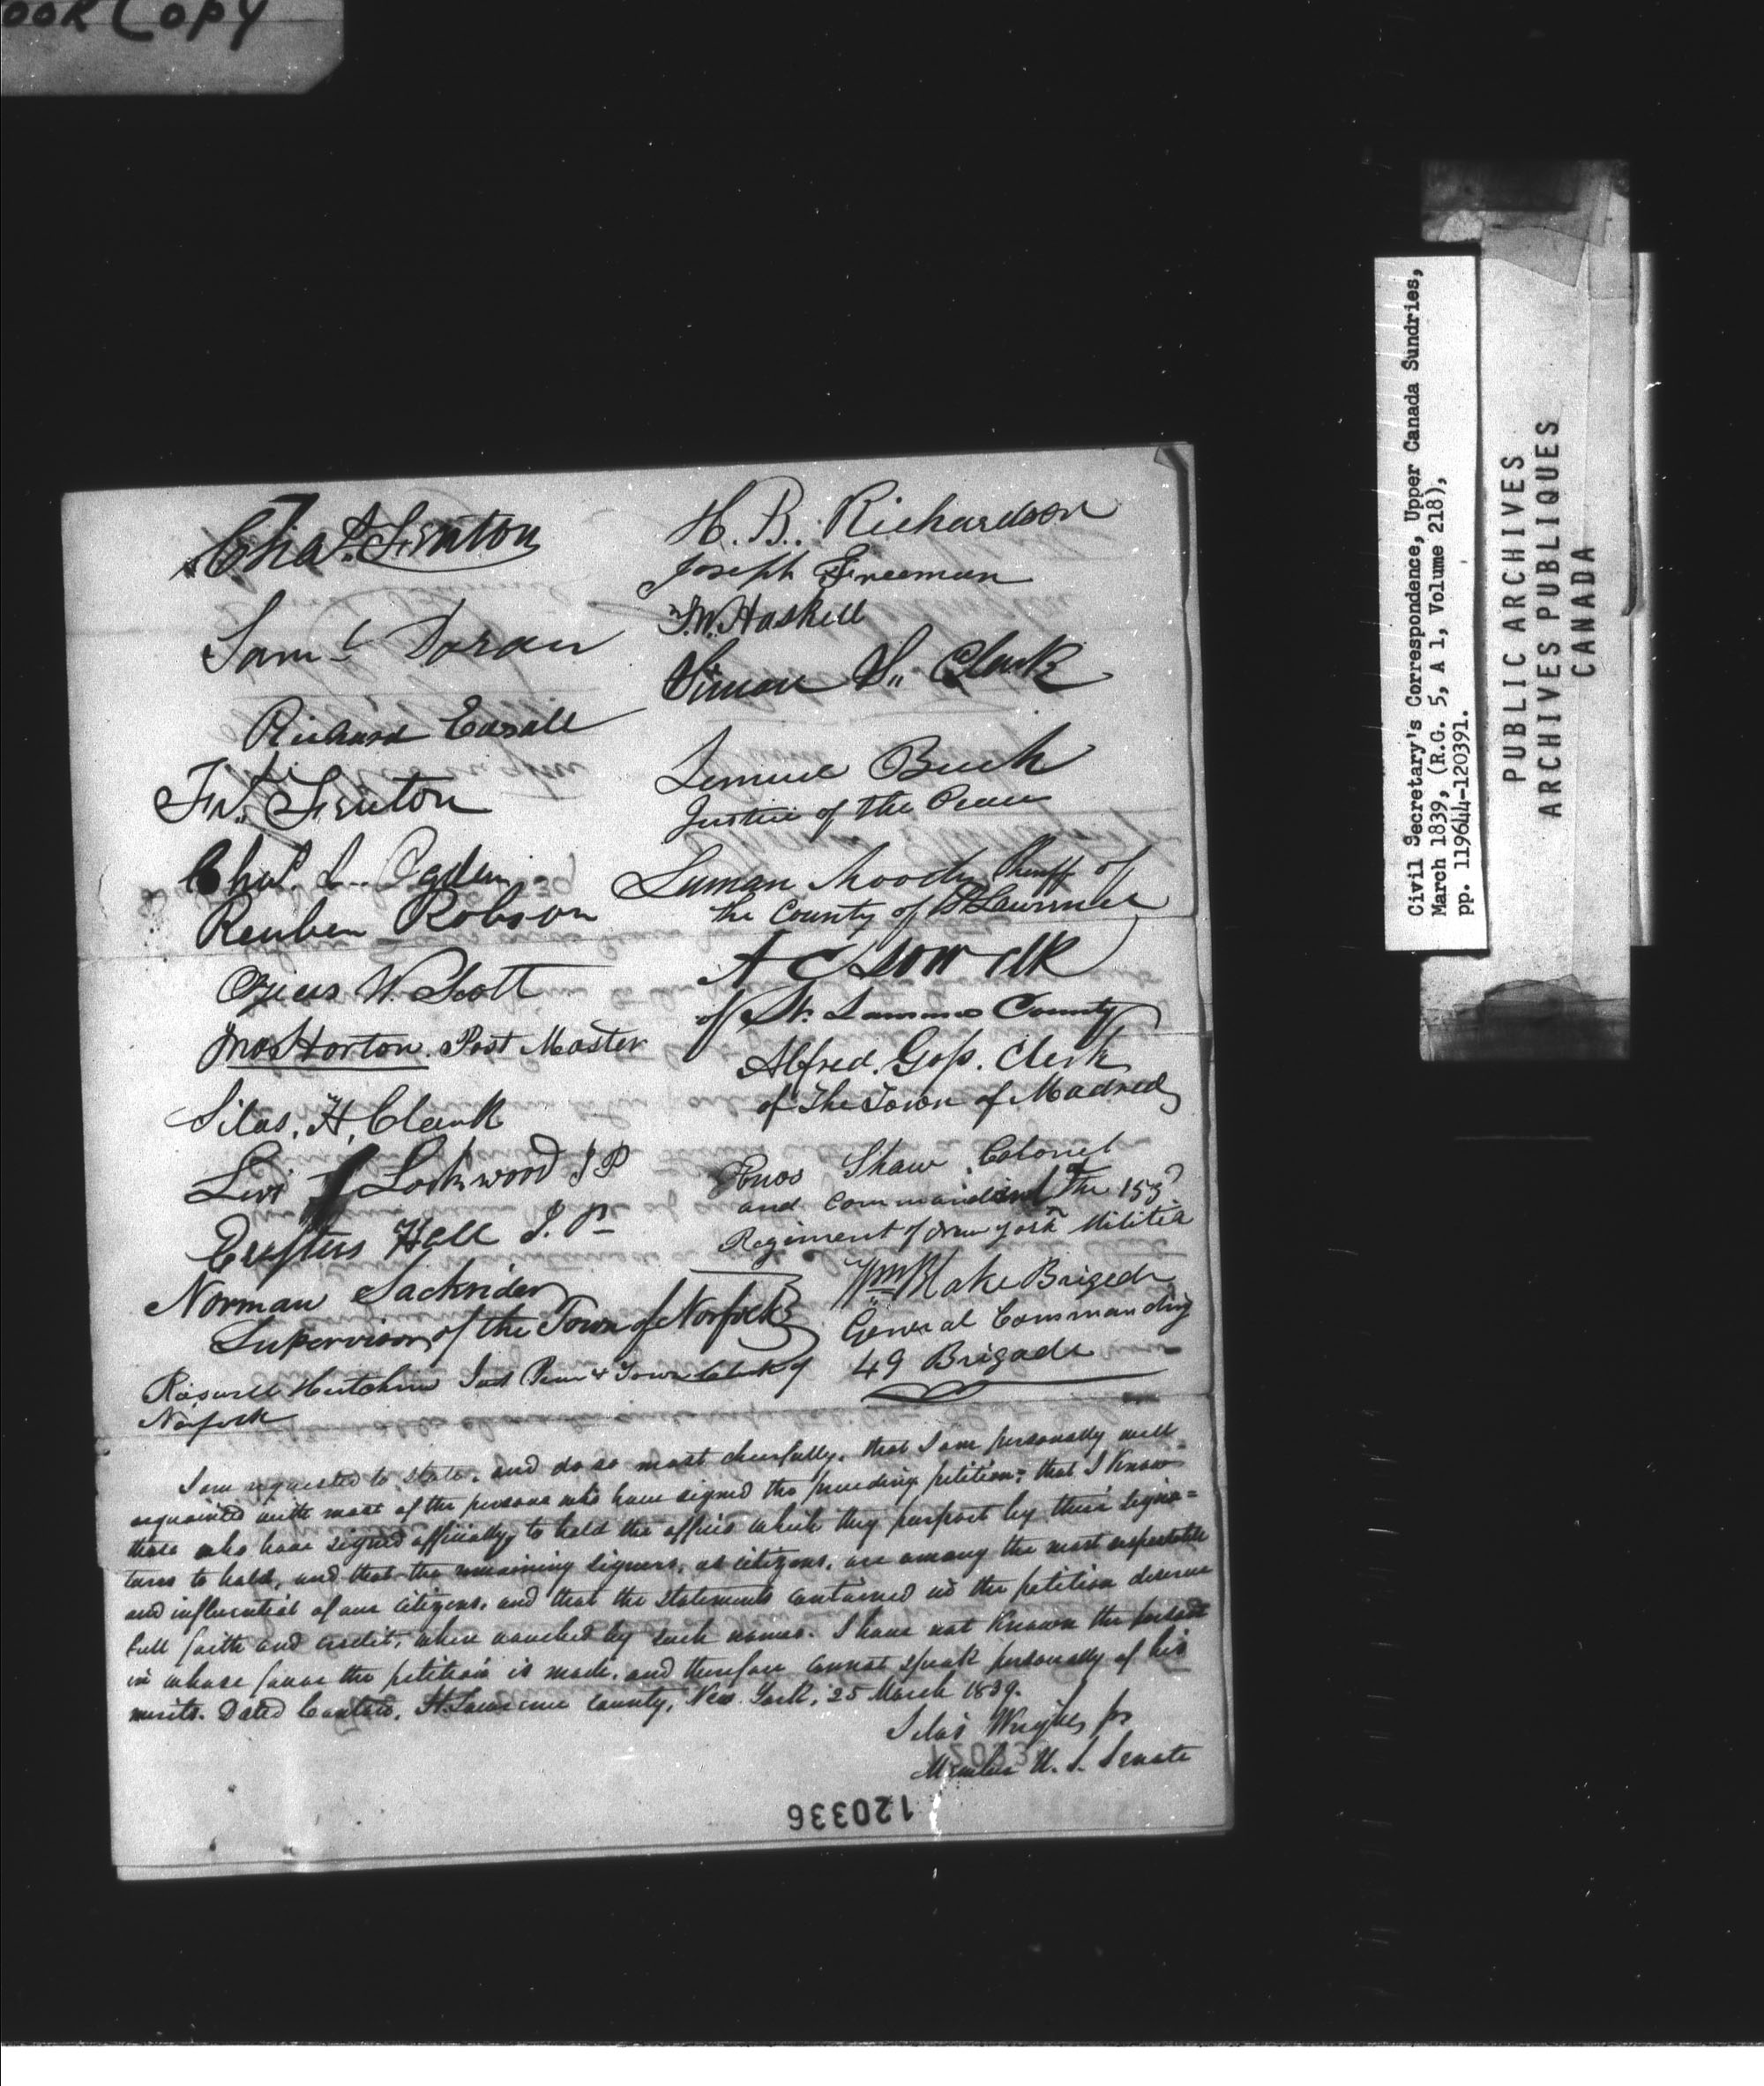 OOR COPY
Chas. Fenton
Saml Doran
Richard Easall
Fs. Fenton
Chas. L. Ogden
Reuben Robson
Ozias W. Scott
Jno Horton. Post Master
Silas. H. Clark
Levi Lockwood J P
Erastus Hall J. P
Norman Sackrider
Supervisor of the Town of Norfolk
Roswell Hutchins Just Peace & Town Clerk of
Norfolk
H. B. Richardson
Joseph Freeman
F. W. Haskell
Simon S. Clark
Lemuel Buck
Justice of the Peace
Luman Moody Sheriff of
the County of St Lawrence
A C Low Clk
of St. Lawrence County
Alfred. Goss. Clerk
of The Town of Madrid
Enos Shaw Colonel
and Commandant of the 153d
Regiment of New York Militia
Wm Blake Brigade
General Commanding
49 Brigade
I am requested to state, and do so most cheerfully, that I am personally well
acquainted with most of the persons who have signed the preceding petition; that I know
those who have signed officially, to hold the offices which they purport by their signa=
tures to hold, and that the remaining signers, as citizens, are among the most respectable
and influential of our citizens, and that the statements contained in the petition deserve
full faith and credit, when vouched by such names. I have not known the person
in whose favor the petition is made, and therefore cannot speak personally of his
merits. Dated Canton, St. Lawrence County, New York, 25 March 1839.
Silas Wright jr
Member U. S. Senate
120336
Civil Secretary's Correspondence, Upper Canada Sundries,
March 1839, (R.G. 5, A 1, Volume 218),
pp. 119644-120391.
PUBLIC ARCHIVES
ARCHIVES PUBLIQUES
CANADA